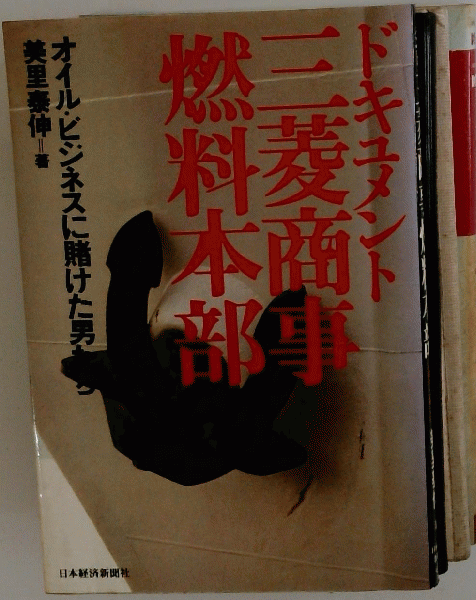 ドキュメント
三菱商事
燃料本部
オイル・ビジネスに賭けた男たち
美里泰伸=著
日本経済新聞社